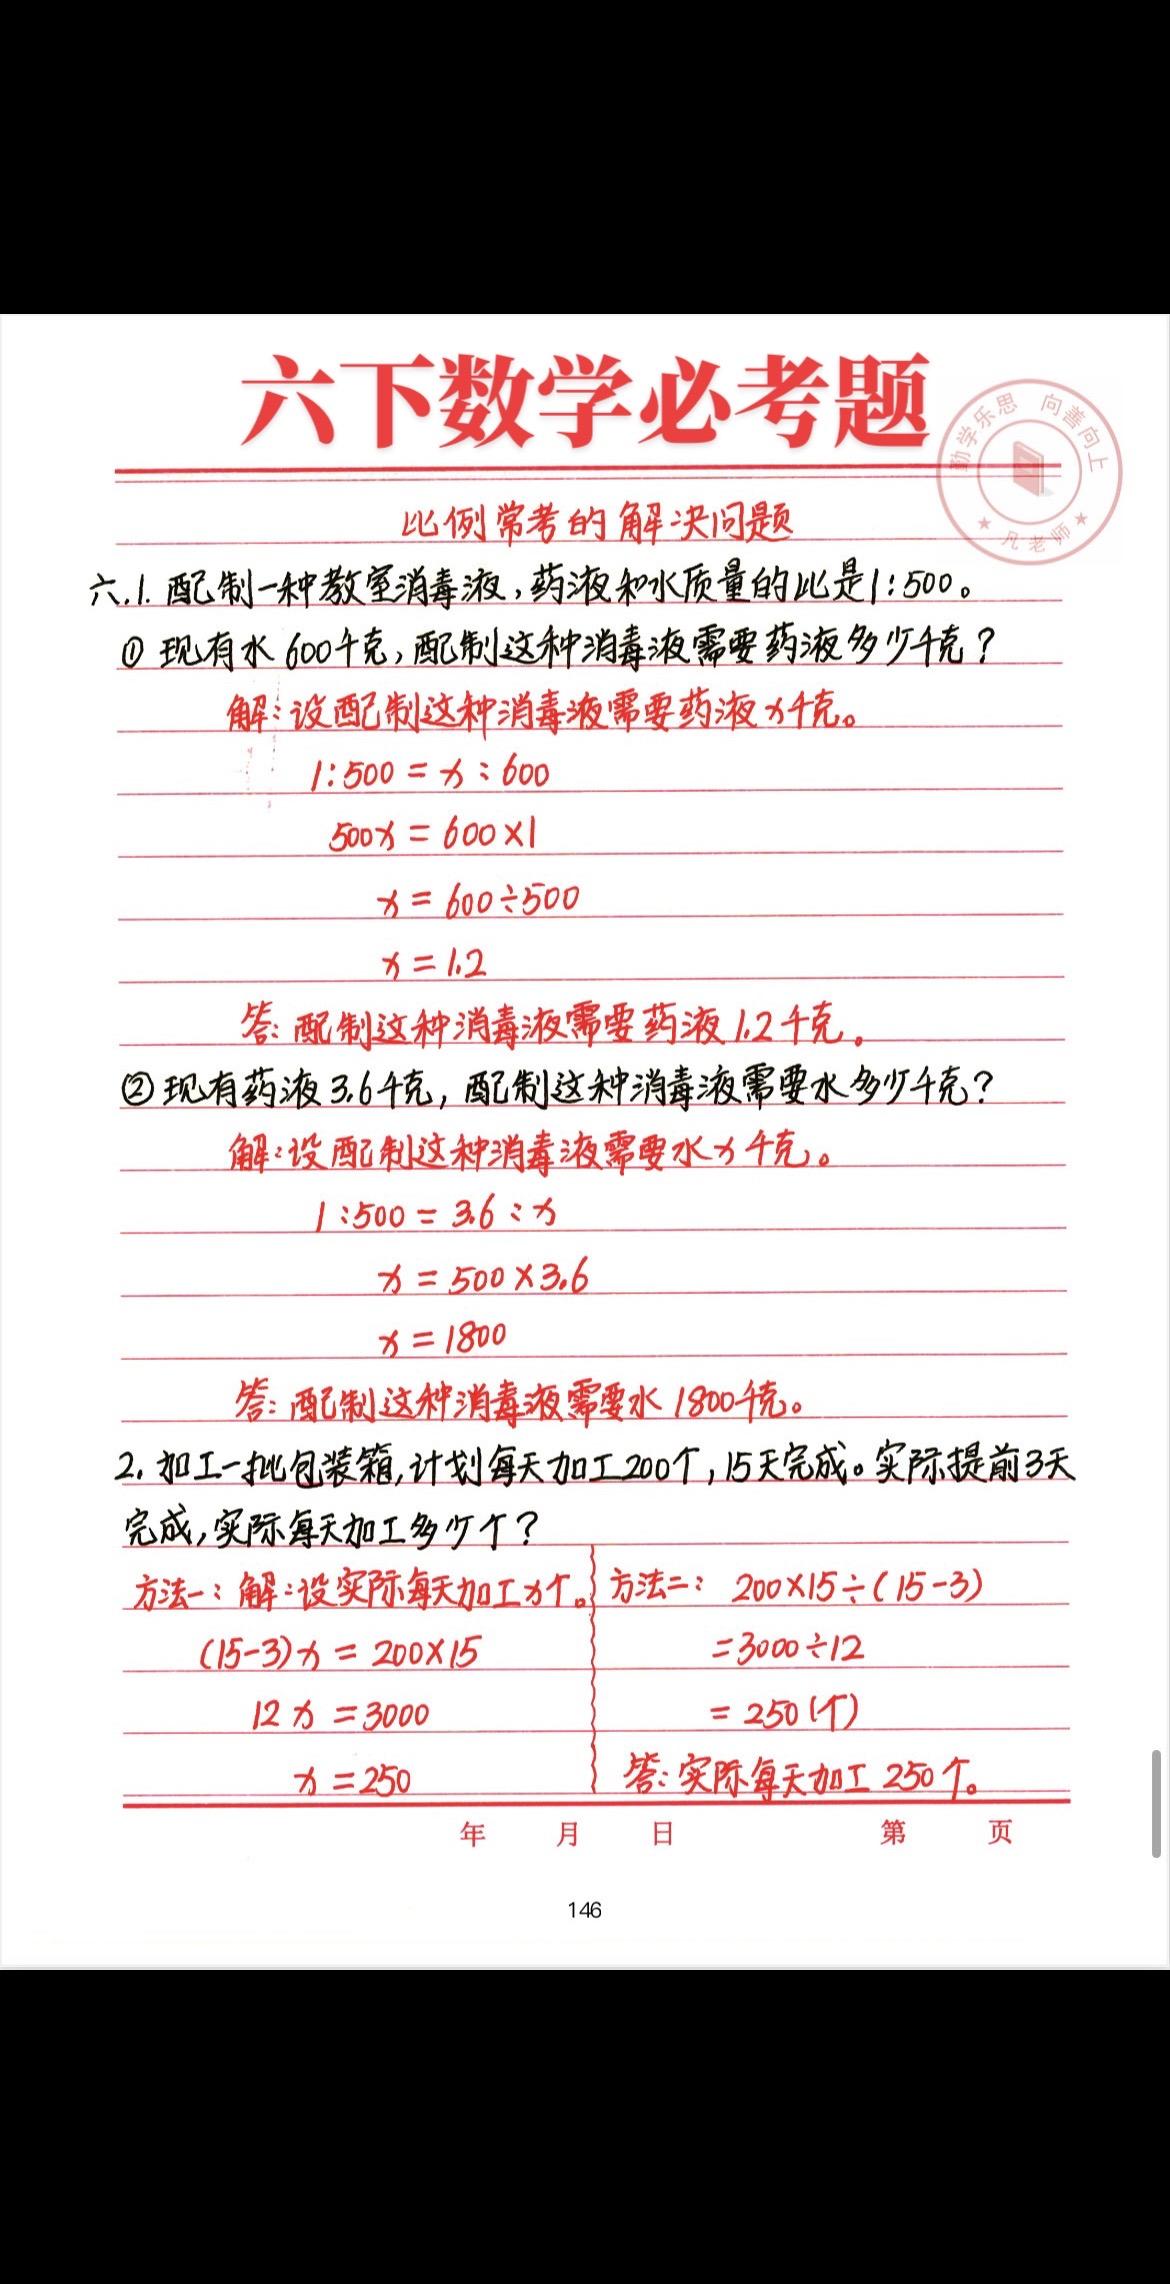 六下数学必考题
勤学乐思 向善向上
凡老师
比例常考的解决问题
六.1.配制一种教室消毒液,药液和水质量的比是1:500。
①现有水600千克,配制这种消毒液需要药液多少千克?
解:设配制这种消毒液需要药液x千克。
1:500=x:600
500x=600×1
x=600÷500
x=1.2
答:配制这种消毒液需要药液1.2千克。
②现有药液3.6千克,配制这种消毒液需要水多少千克?
解:设配制这种消毒液需要水x千克。
1:500=3.6:x
x=500×3.6
x=1800
答:配制这种消毒液需要水1800千克。
2.加工一批包装箱,计划每天加工200个,15天完成。实际提前3天
完成,实际每天加工多少个?
方法一:解:设实际每天加工x个。
(15-3)x=200×15
12x=3000
x=250
方法二:200×15÷(15-3)
=3000÷12
=250(个)
答:实际每天加工250个。
年 月 日 第 页
146